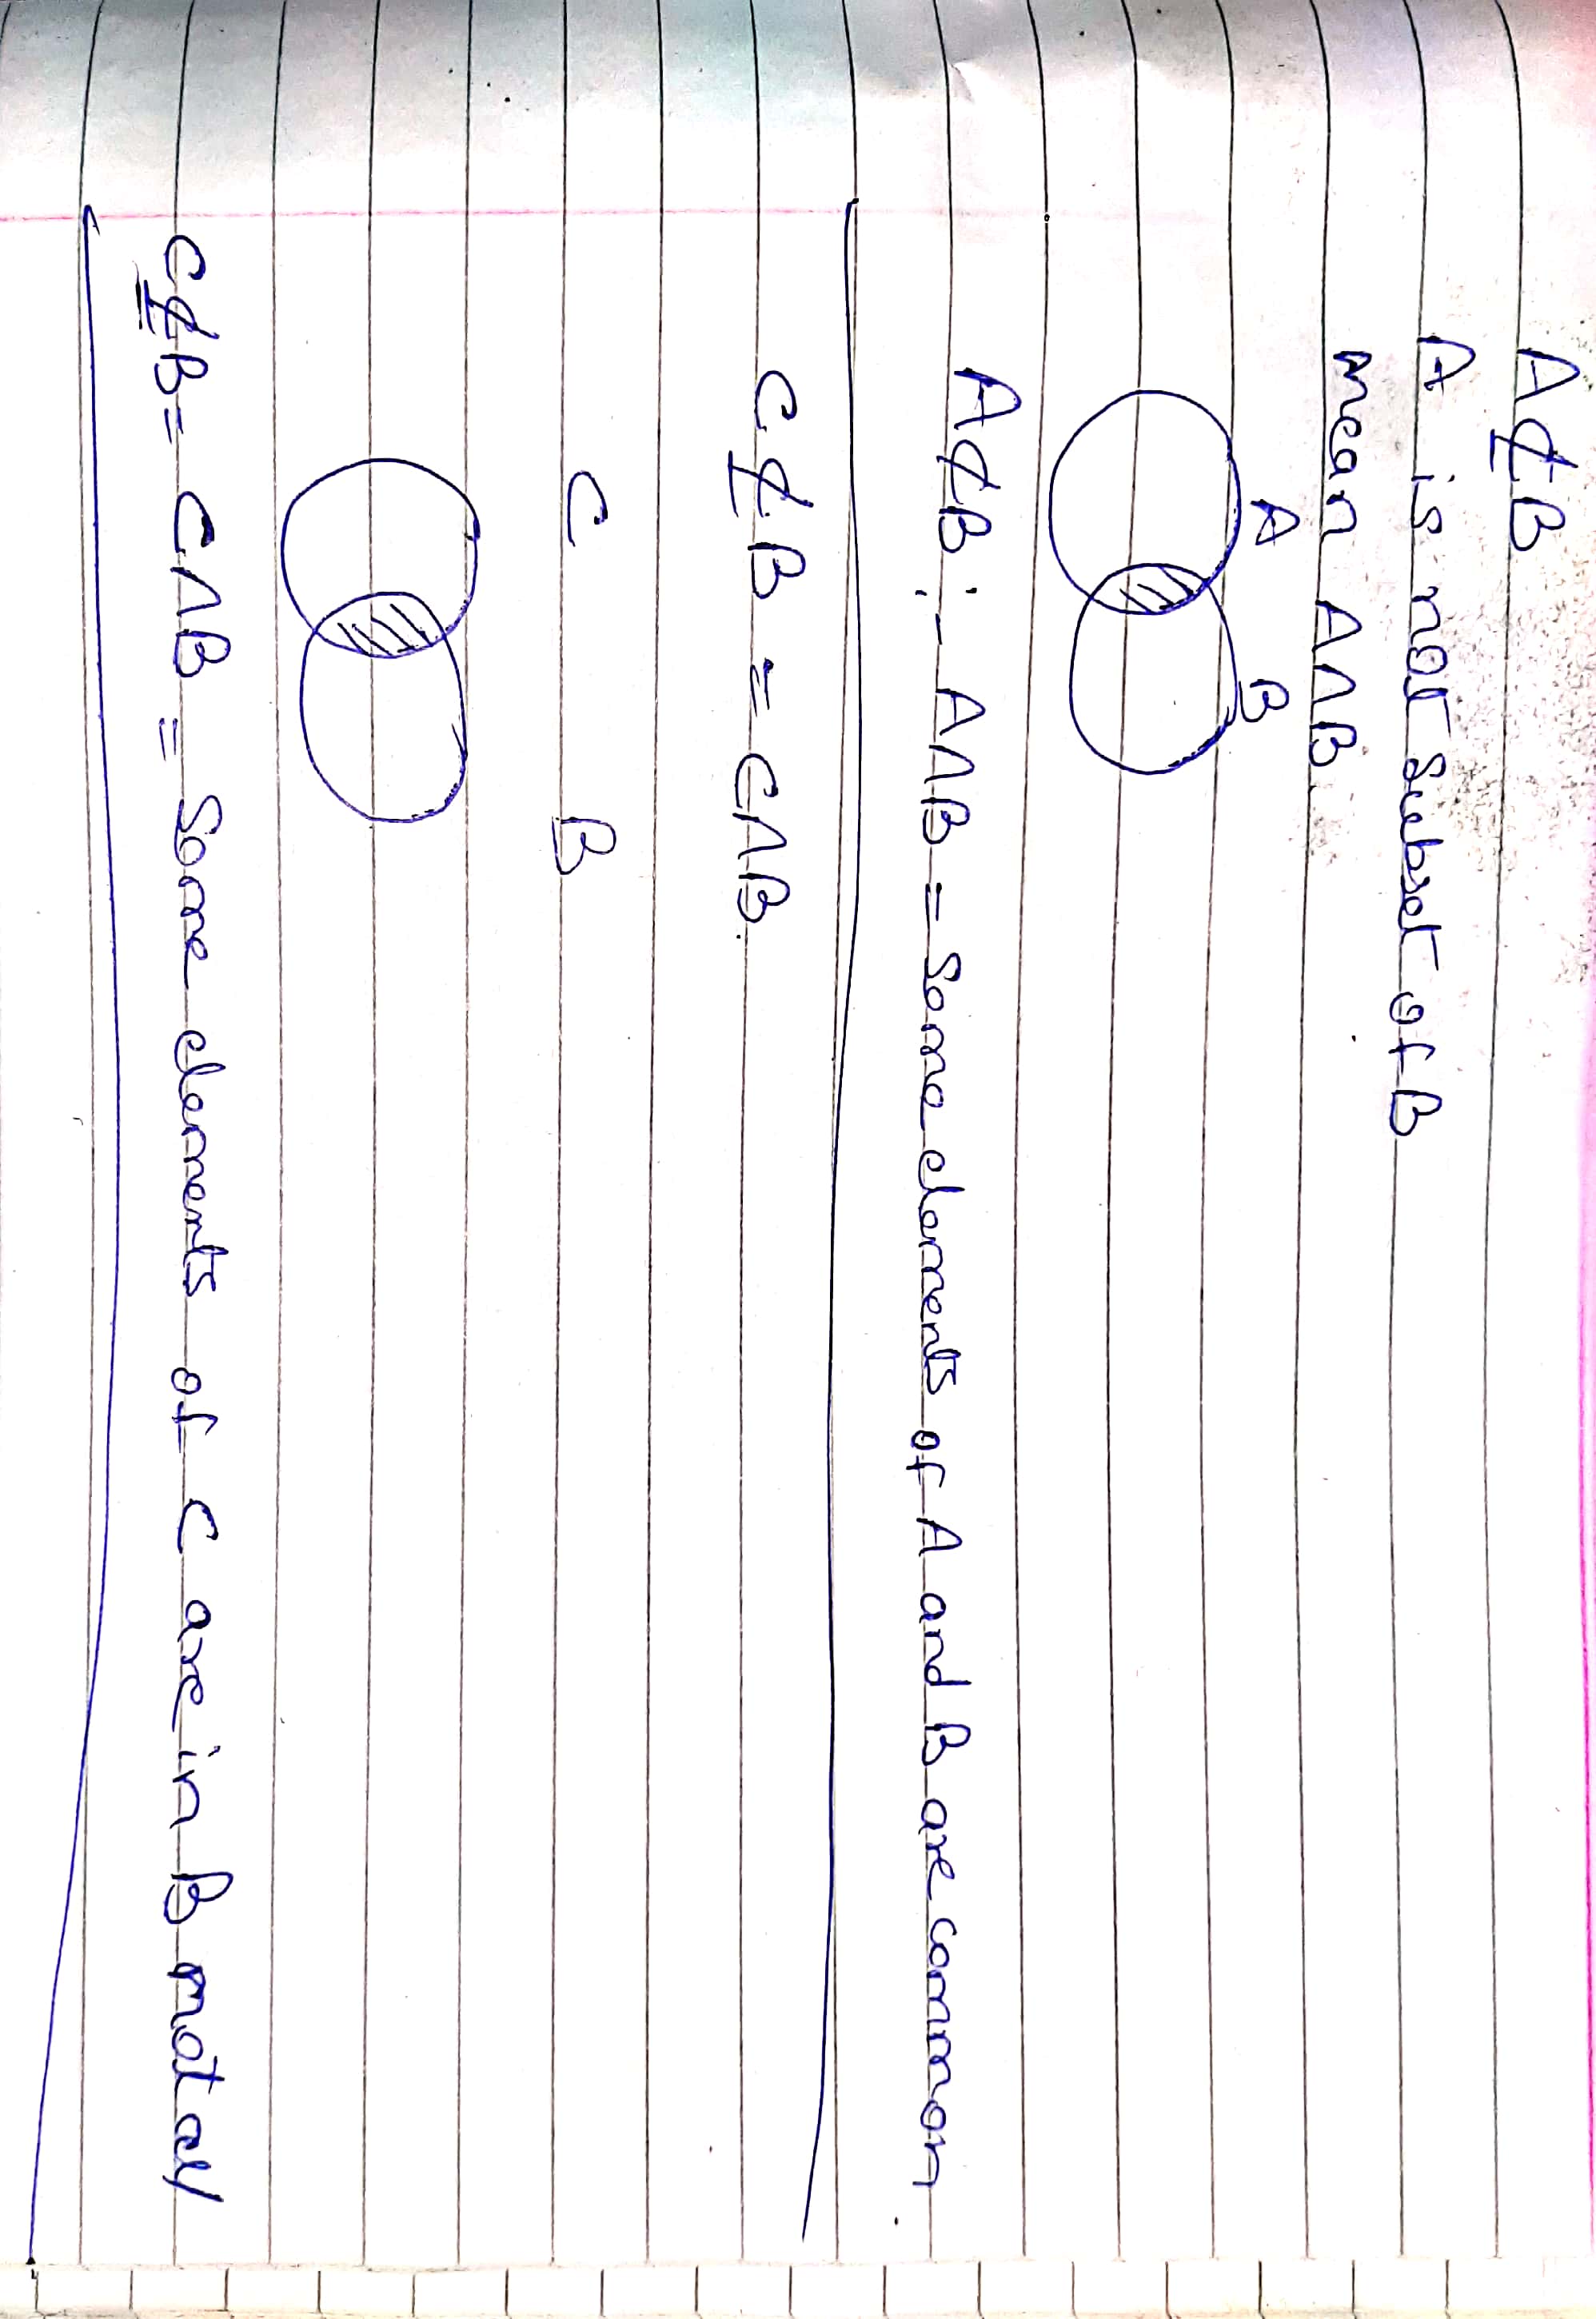 A ⊈ B
A is not subset of B
mean A∩B
A B
A⊄B :- A∩B = Some elements of A and B are common
C ⊈ B = C∩B.
C B
C⊈B = C∩B = Some elements of C are in B not all